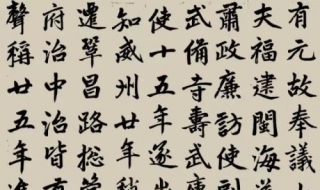 有元故奉議大
夫福建閩海道
肅政廉訪使副
武備寺壽武庫
使十五年遂出
知威州廿年稍
遷鞏昌路總管
府治中治皆有
聲稱廿五年進